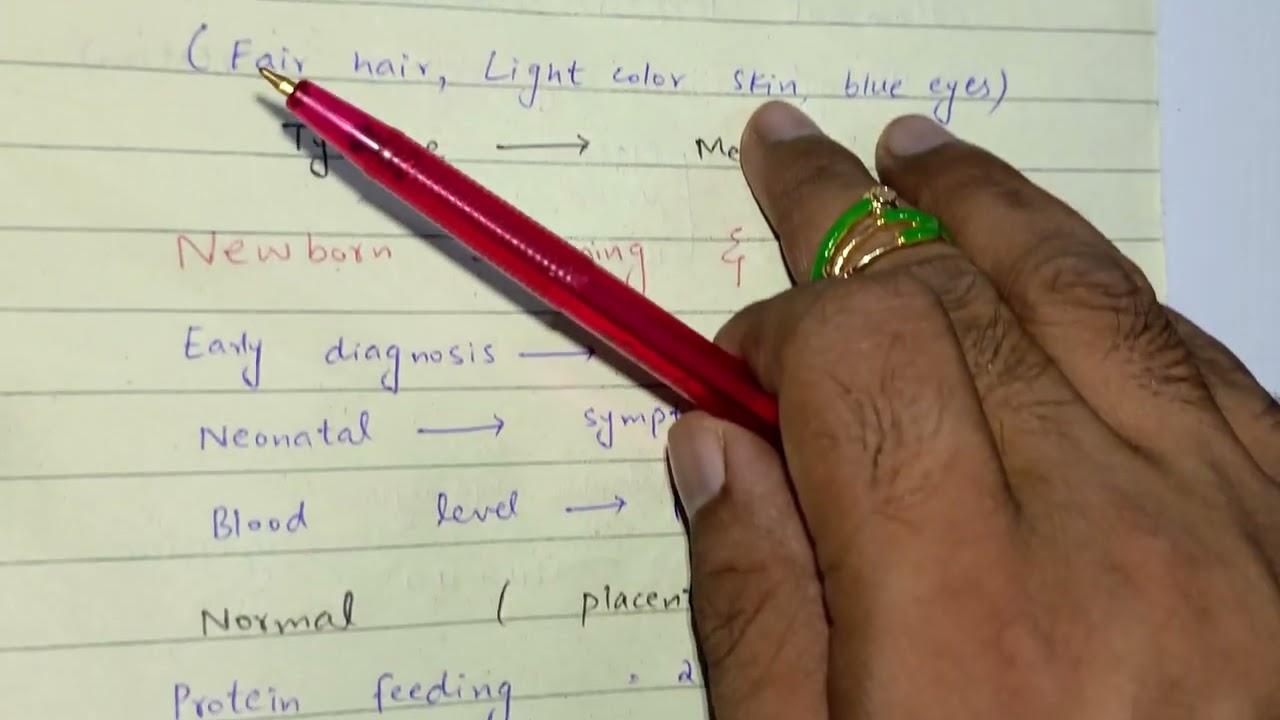 (Fair hair, Light color skin, blue eyes)
→
Newborn &
Early diagnosis →
Neonatal →
Blood level →
Normal (
Protein feeding